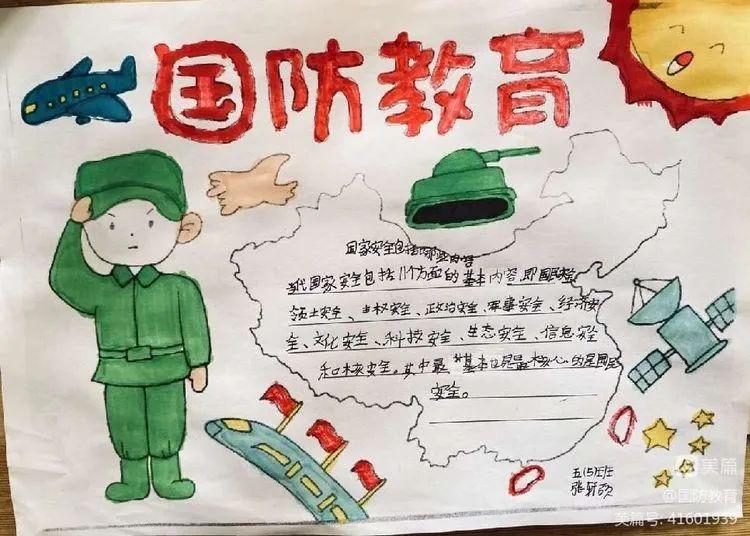 国防教育
国家安全包括哪些内容
当代国家安全包括11个方面的基本内容,即国民安全
领土安全、主权安全、政治安全、军事安全、经济安
全、文化安全、科技安全、生态安全、信息安全
和核安全。其中最基本也是最核心的是国民
安全。
五(5)班
美篇
@国防教育
美篇号: 41601939